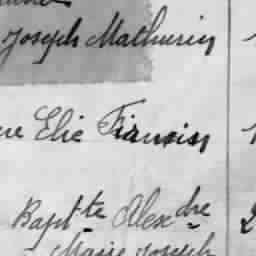 Joseph Mathurin
Elie Francis
Bapt.te Alex.dre
Marie Joseph